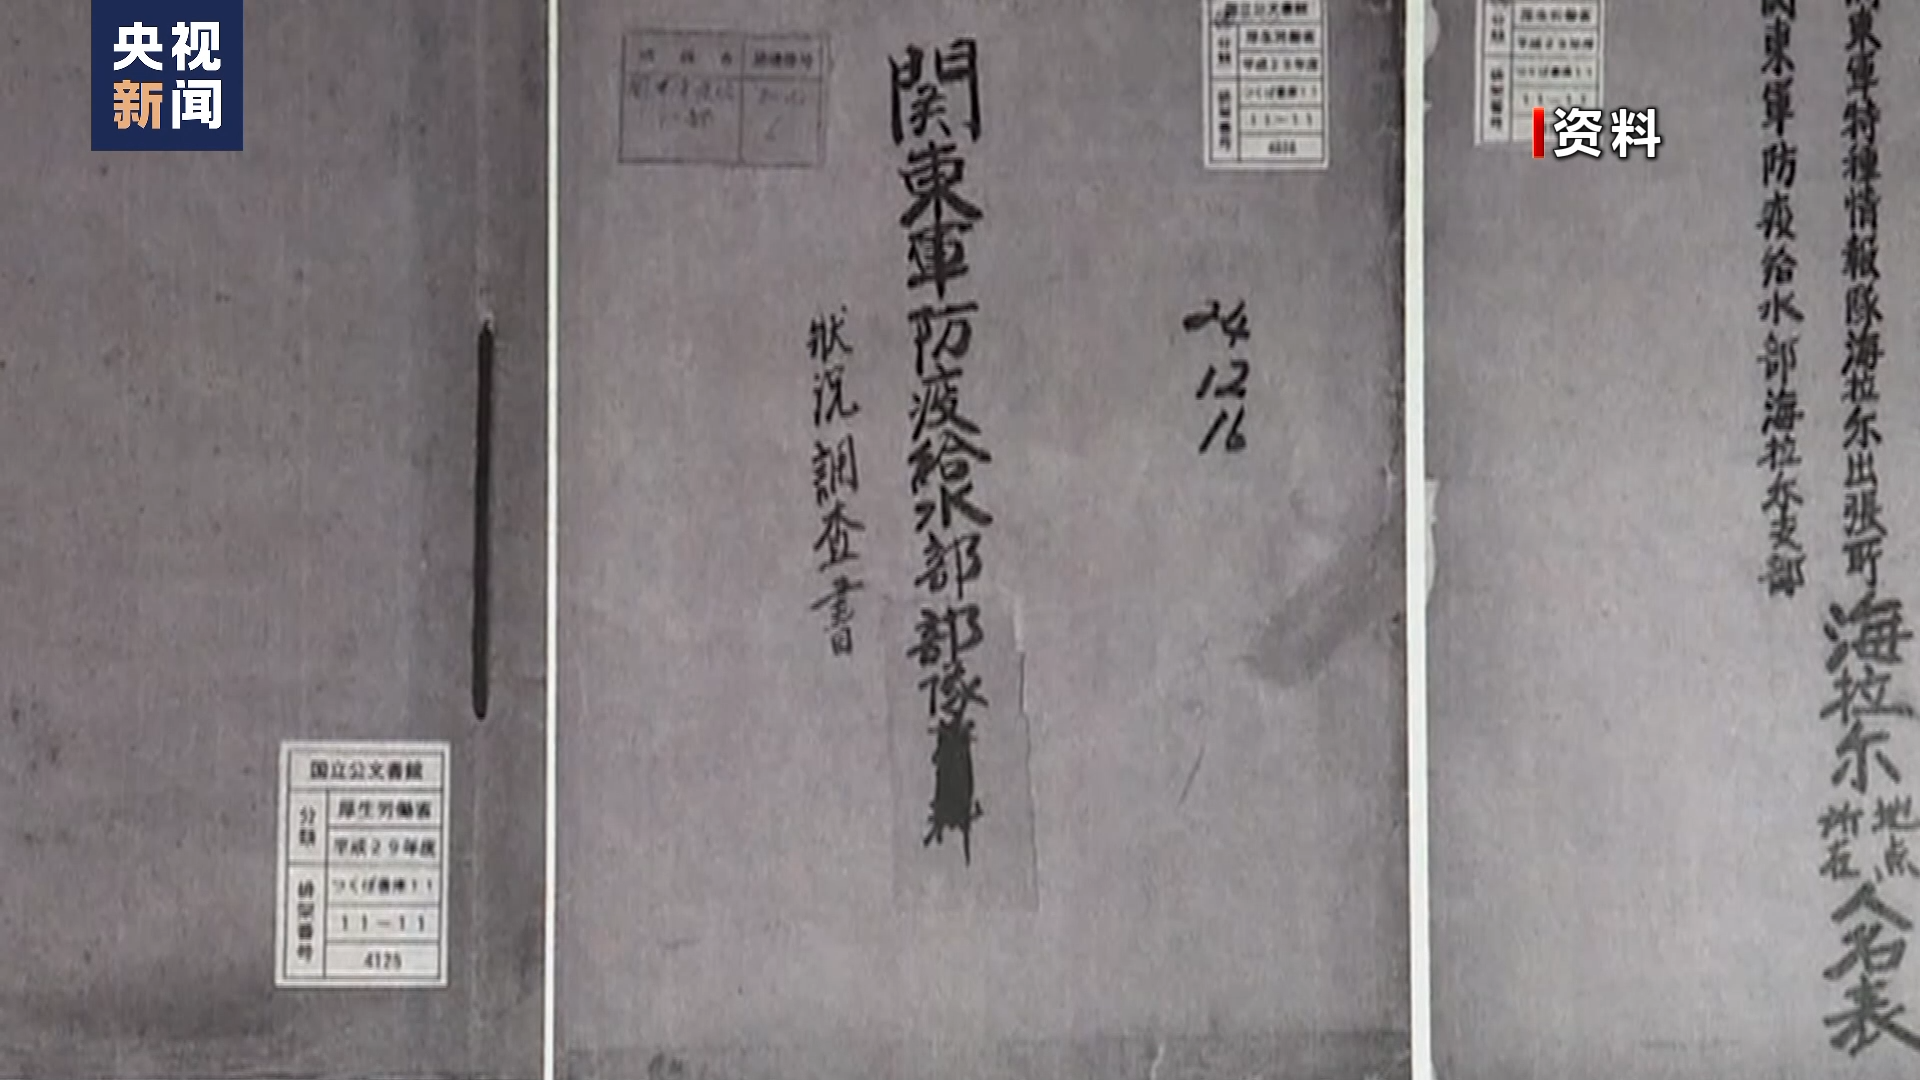 央视
新闻
资料
国立公文書館
分類
厚生労働省
平成29年度
排架番号
つくば書庫11
11-11
4125
関東軍防疫給水部部隊
状况調査書
24
12
16
国立公文書館
分類
厚生労働省
平成29年度
排架番号
つくば書庫11
11-11
分類
厚生労働省
平成29年度
排架番号
つくば書庫11
11-11
東軍特種情報隊海拉尔出張所
関東軍防疫給水部海拉尔支部
海拉尔
地点
所在
人名表